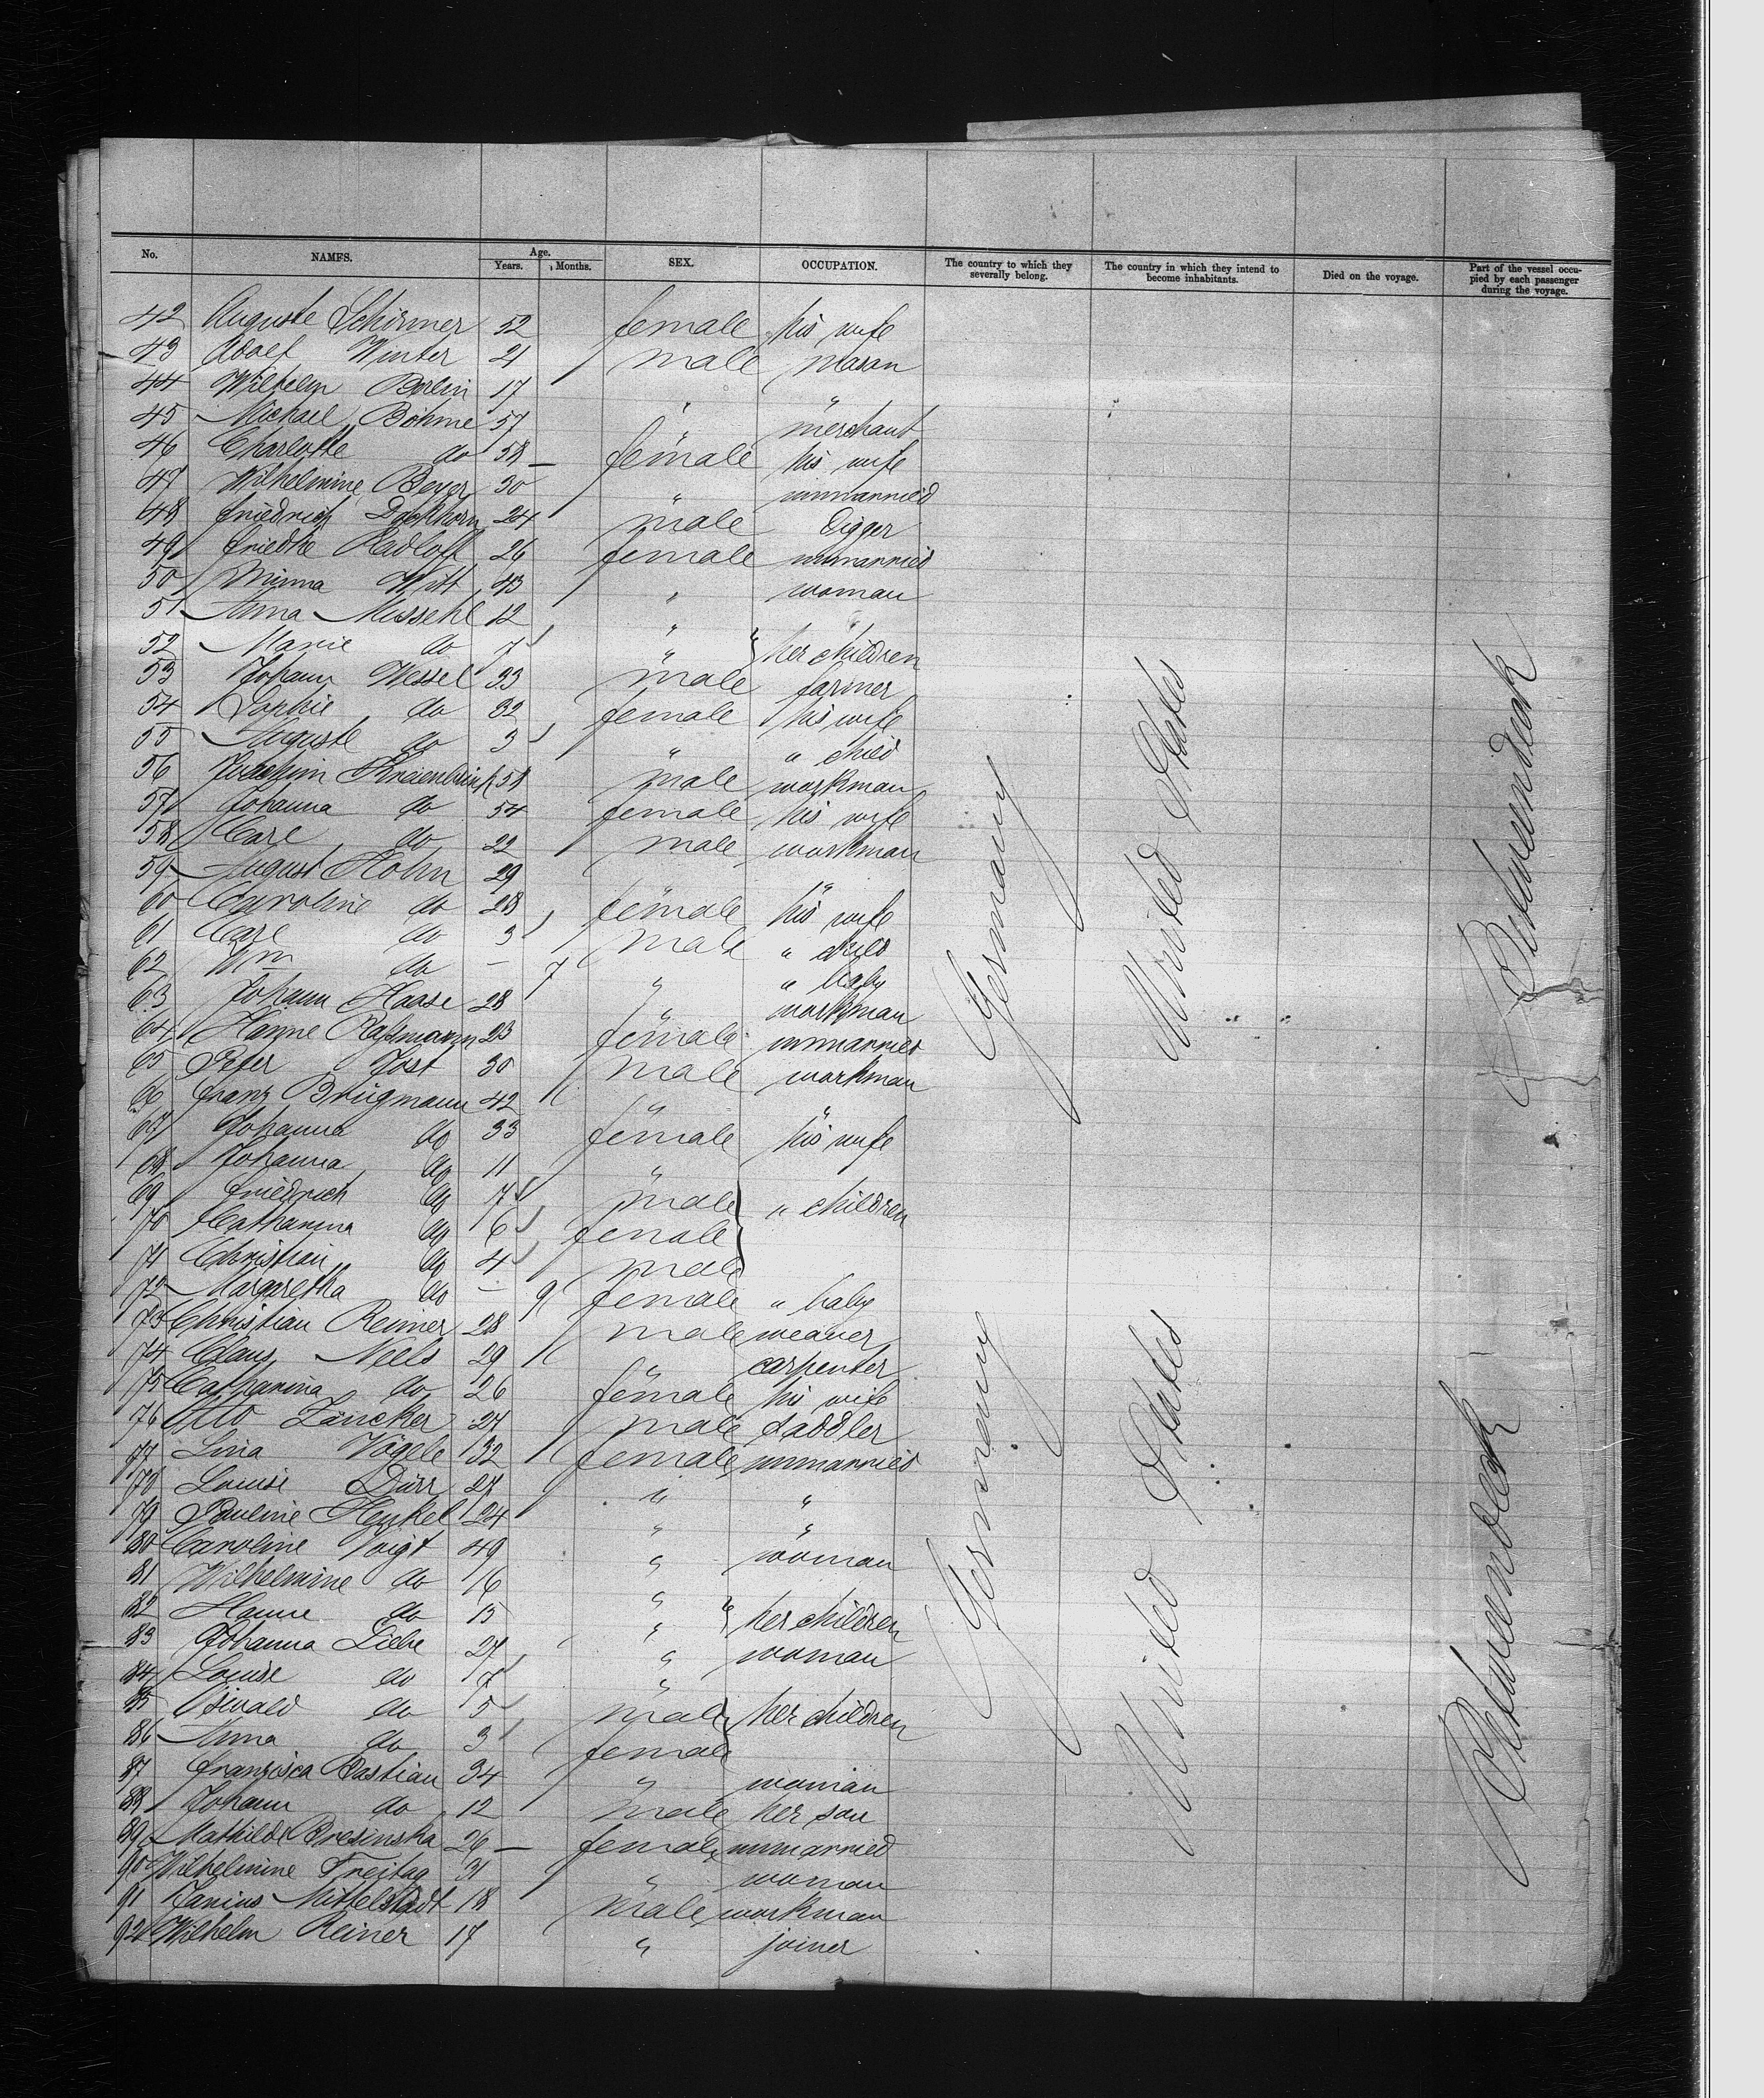 No. NAMES. Age. Years. Months. SEX. OCCUPATION. The country to which they severally belong. The country in which they intend to become inhabitants. Died on the voyage. Part of the vessel occupied by each passenger during the voyage.
42 Auguste Schirmer 52 female his wife
43 Adolf Winter 21 male mason
44 Wilhelm Berlin 17 " "
45 Michael Böhme 57 " merchant
46 Charlotte do 58 female his wife
47 Wilhelmine Beyer 30 " unmarried
48 Friedrich Dackhorn 24 male Digger
49 Friedke Radloff 26 female unmarried
50 Minna Witt 43 " woman
51 Anna Missehl 12 " "
52 Marie do 7 " her children
53 Johann Wessel 33 male farmer
54 Sophie do 32 female his wife
55 Auguste do 3 " " child
56 Joachim 58 male workman
57 Johanna do 54 female his wife
58 Carl do 22 male workman
59 August Hohn 29 " "
60 Caroline do 28 female his wife
61 Carl do 3 male " child
62 Wm do - 7 " " baby
63 Johann Haase 28 " workman
64 Hanne Raßmann 23 female unmarried
65 Peter Jost 30 male workman
66 Franz Brügmann 42 " "
67 Johanna do 33 female his wife
68 Johanna do 11 "
69 Friedrich do 7 male " children
70 Catharina do 6 female
71 Christian do 4 male
72 Margaretha do - 9 female " baby
73 Christian Reimer 28 male weaver
74 Claus Neels 29 " carpenter
75 Catharina do 26 female his wife
76 Otto Zäncker 24 male saddler
77 Lina Vögele 32 female unmarried
78 Louise Dürr 27 " "
79 Pauline Henkel 24 " "
80 Caroline Voigt 49 " woman
81 Wilhelmine do 16 "
82 Hanne do 15 " her children
83 Johanna Liebe 27 " woman
84 Louise do 7 "
85 Oswald do 5 male her children
86 Anna do 3 female
87 Franzisca Bastian 34 " woman
88 Johann do 12 male her son
89 Mathilde Bresinska 26 female unmarried
90 Wilhelmine Freitag 31 " woman
91 Mittelstädt 18 male workman
92 Wilhelm Reiner 17 " joiner
Germany
United States
Betweendeck
Germany
United States
Betweendeck